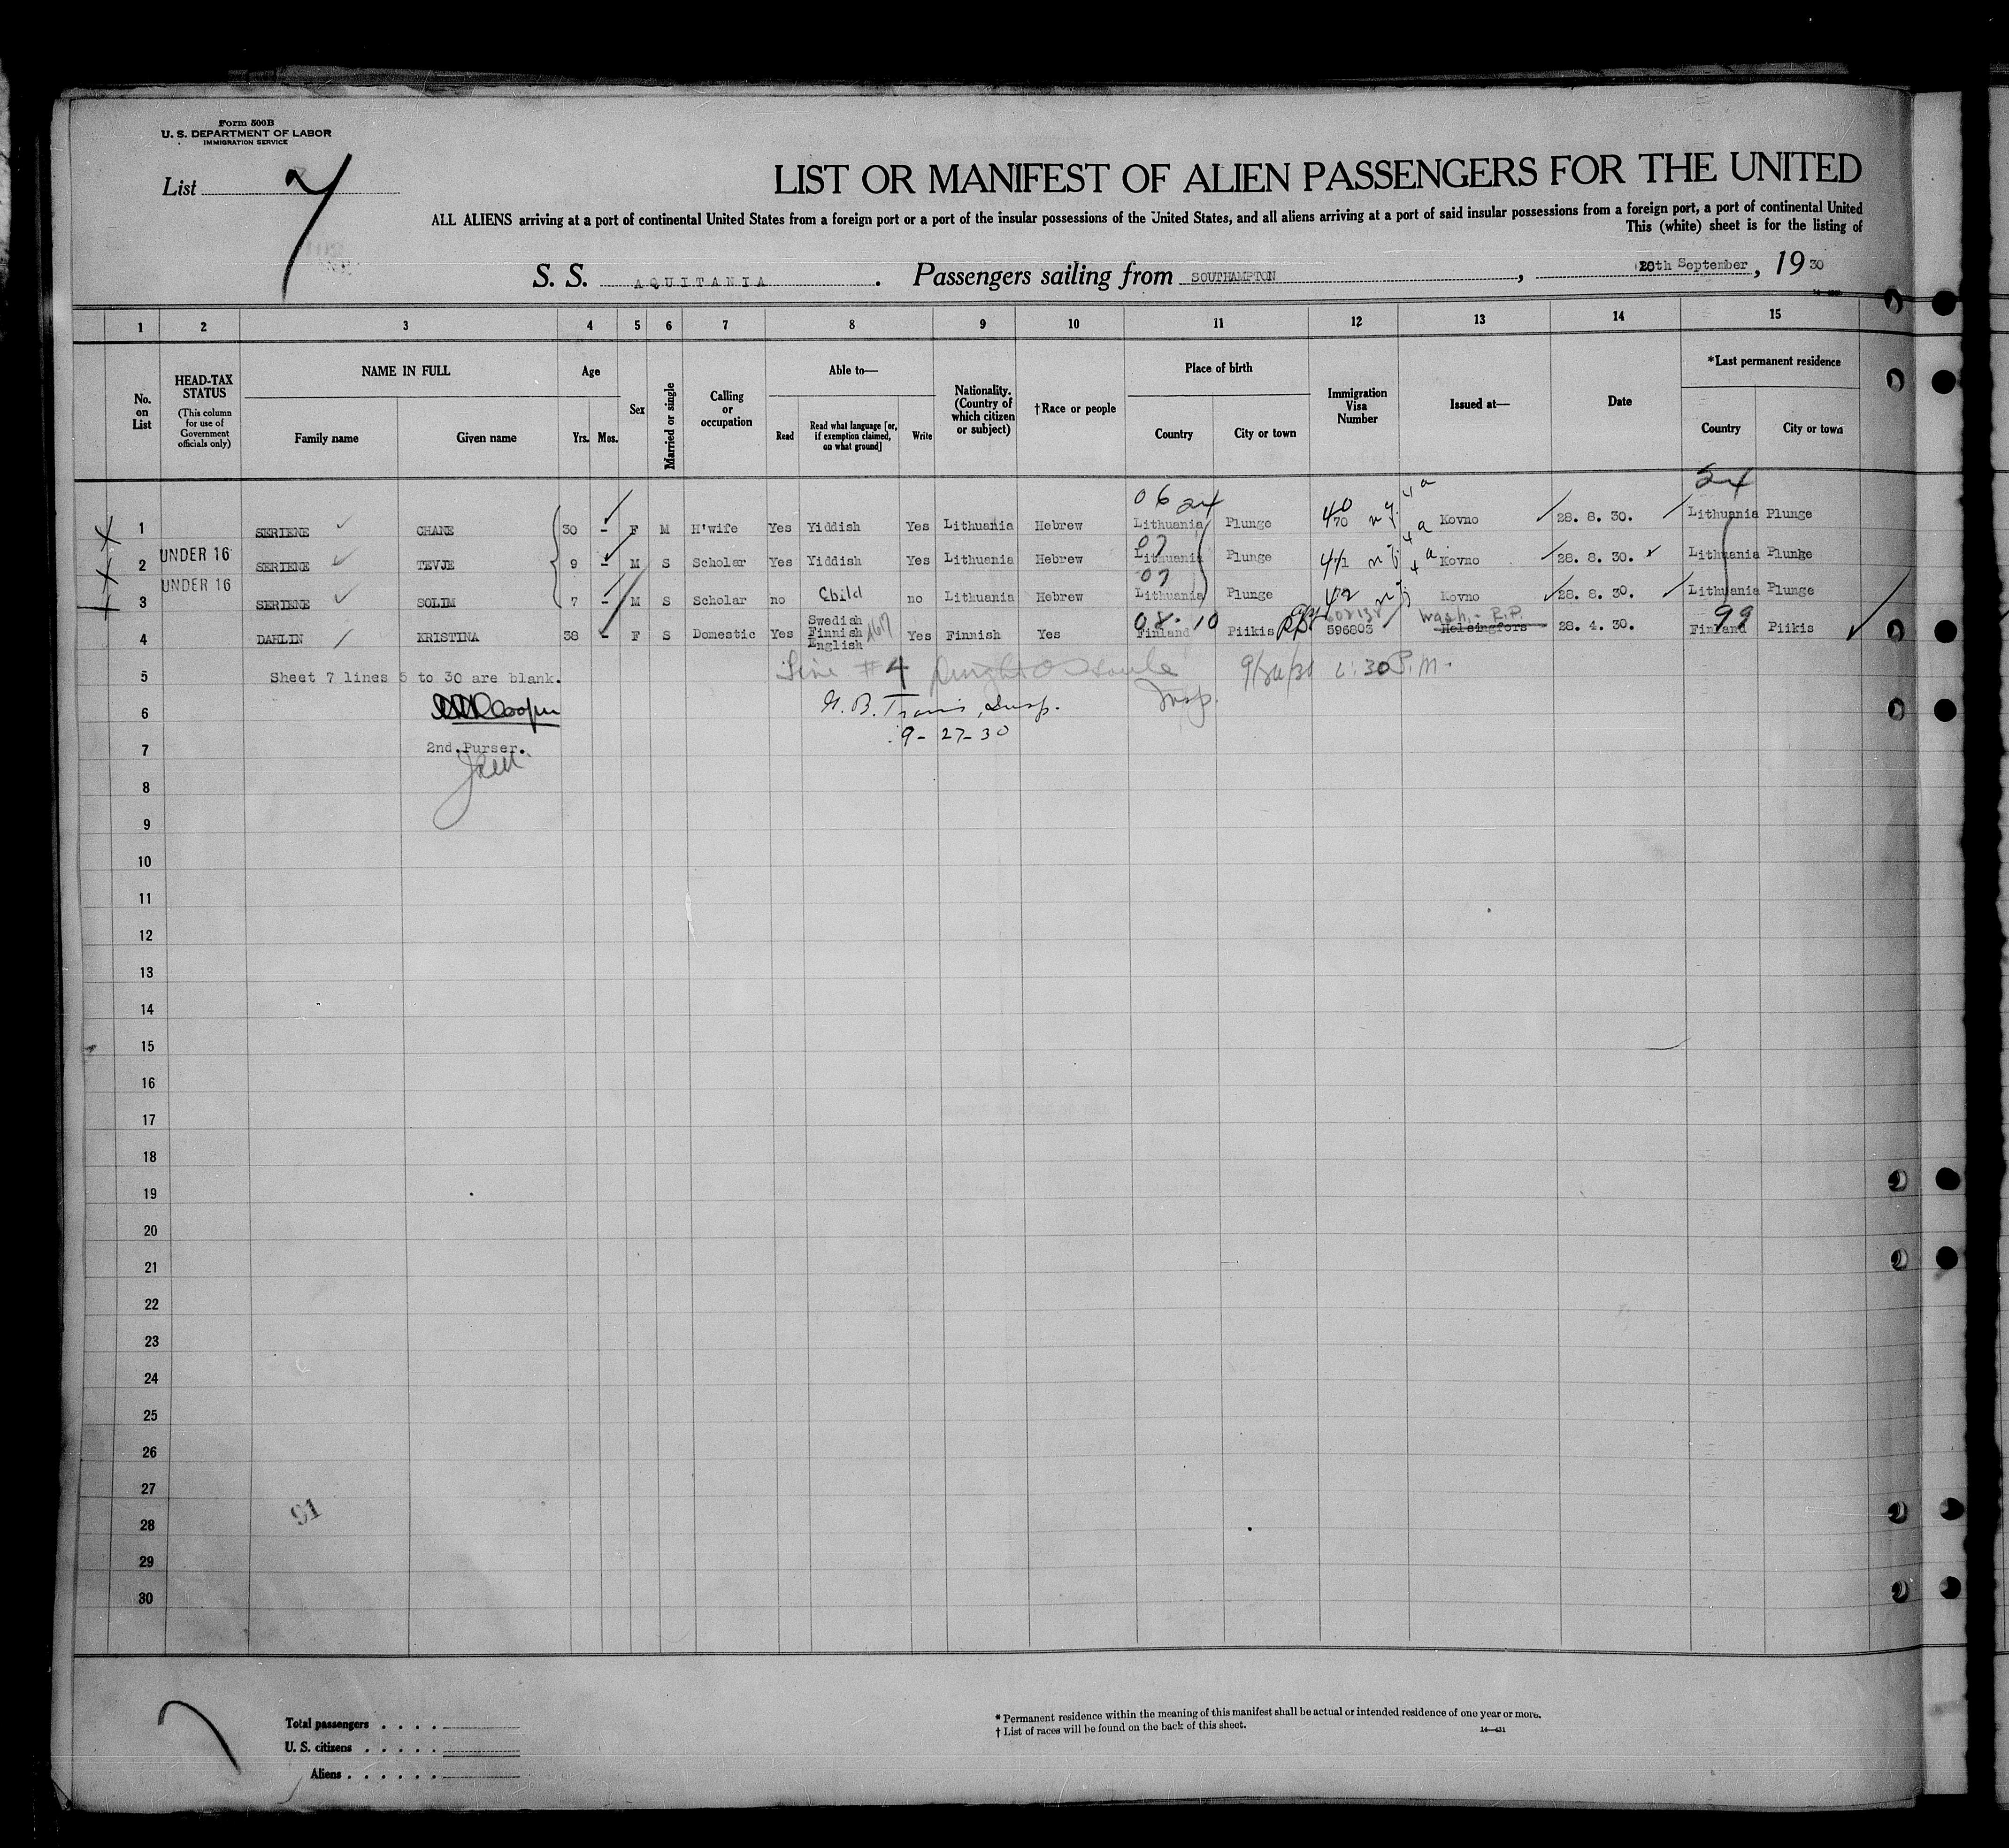 Form 500B
U. S. DEPARTMENT OF LABOR
IMMIGRATION SERVICE
List 7
LIST OR MANIFEST OF ALIEN PASSENGERS FOR THE UNITED
ALL ALIENS arriving at a port of continental United States from a foreign port or a port of the insular possessions of the United States, and all aliens arriving at a port of said insular possessions from a foreign port, a port of continental United
This (white) sheet is for the listing of
S. S. AQUITANIA . Passengers sailing from SOUTHAMPTON , 20th September , 19 30
1 2 3 4 5 6 7 8 9 10 11 12 13 14 15
No. on List
HEAD-TAX STATUS
(This column for use of Government officials only)
NAME IN FULL
Family name Given name
Age
Yrs. Mos.
Sex
Married or single
Calling or occupation
Able to—
Read Read what language [or, if exemption claimed, on what ground] Write
Nationality. (Country of which citizen or subject)
†Race or people
Place of birth
Country City or town
Immigration Visa Number
Issued at—
Date
*Last permanent residence
Country City or town
06 24 24
1 SERIENE CHANE 30 - F M H'wife Yes Yiddish Yes Lithuania Hebrew Lithuania Plunge 470 Kovno 28. 8. 30. Lithuania Plunge
07
2 UNDER 16 SERIENE TEVJE 9 - M S Scholar Yes Yiddish Yes Lithuania Hebrew Lithuania Plunge 471 Kovno 28. 8. 30. Lithuania Plunge
07
3 UNDER 16 SERIENE SOLIM 7 - M S Scholar no Child no Lithuania Hebrew Lithuania Plunge 472 Kovno 28. 8. 30. Lithuania Plunge
08. 10 Wash.- R.P. 99
4 DAHLIN KRISTINA 38 - F S Domestic Yes Swedish Finnish English Yes Finnish Yes Finland Piikis 596803 Helsingfors 28. 4. 30. Finland Piikis
5 Sheet 7 lines 5 to 30 are blank. Line #4 P.M.
6 Cooper Insp. Insp.
9-27-30
7 2nd.Purser.
8
9
10
11
12
13
14
15
16
17
18
19
20
21
22
23
24
25
26
27
91
28
29
30
Total passengers . . . .
U. S. citizens . . . . .
Aliens . . . . . .
* Permanent residence within the meaning of this manifest shall be actual or intended residence of one year or more.
† List of races will be found on the back of this sheet.
14—431